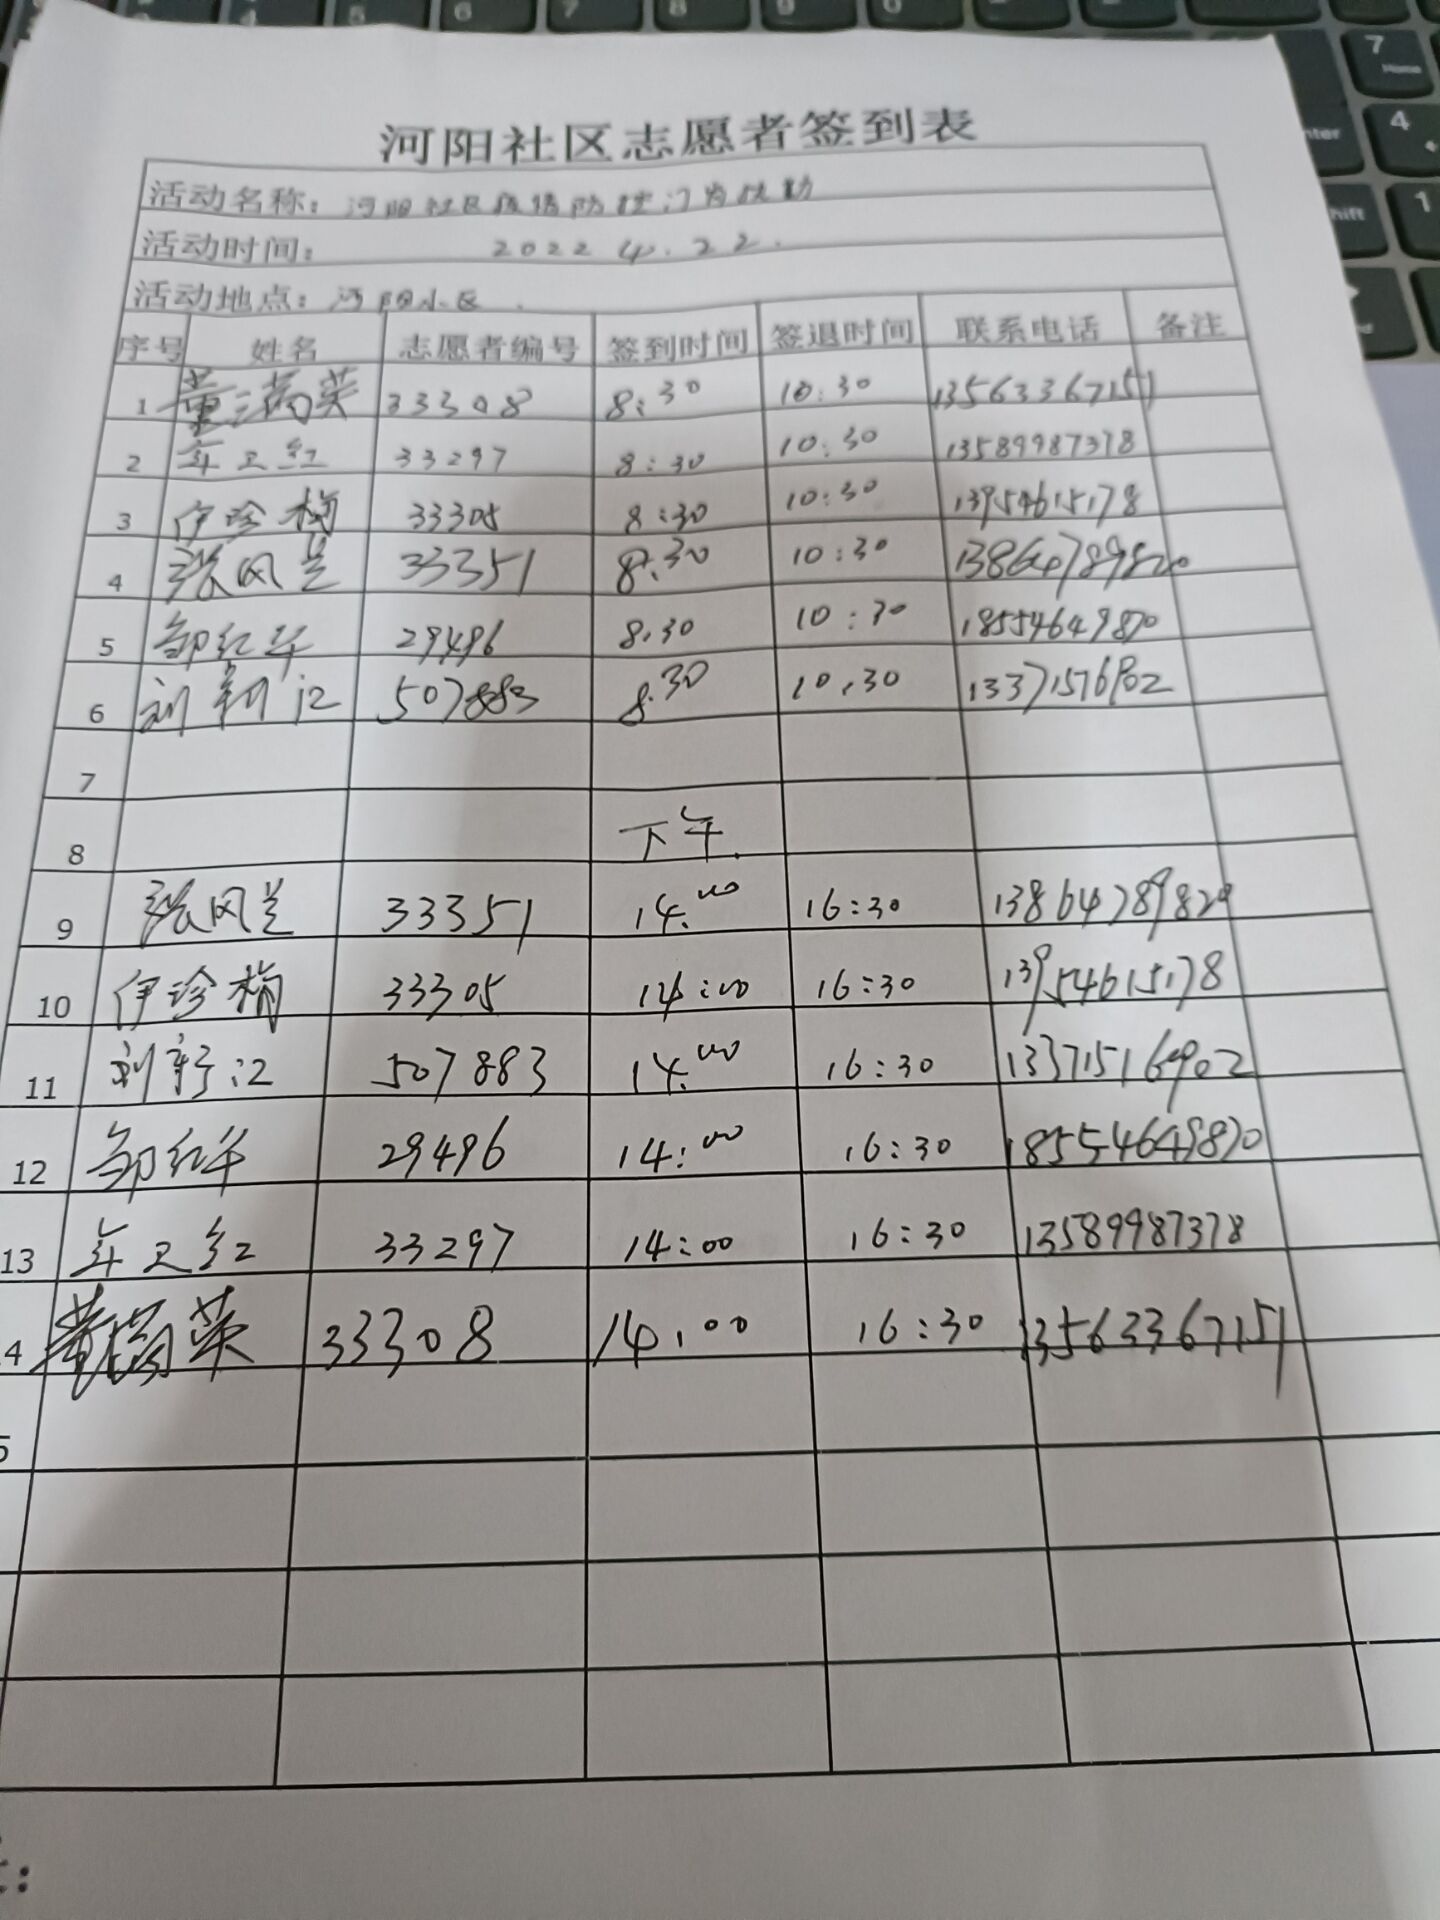 河阳社区志愿者签到表
活动名称：河阳社区疫情防控门岗执勤
活动时间： 2022 4.22.
活动地点：河阳小区.
序号 姓名 志愿者编号 签到时间 签退时间 联系电话 备注
1 董满英 33308 8:30 10:30 13563367151
2 红 33297 8:30 10:30 13589987378
3 伊珍梅 33305 8:30 10:30 13954615178
4 张风兰 33351 8:30 10:30 13864789820
5 邹红华 29496 8.30 10:30 18554649870
6 刘新江 507883 8:30 10.30 13371576902
7
8 下午.
9 张风兰 33351 14:00 16:30 13864789820
10 伊珍梅 33305 14:00 16:30 13954615178
11 刘新江 507883 14:00 16:30
12 邹红华 29496 14:00 16:30 18554649870
13 红 33297 14:00 16:30 13589987378
4 董满英 33308 14:00 16:30 13563367151
5